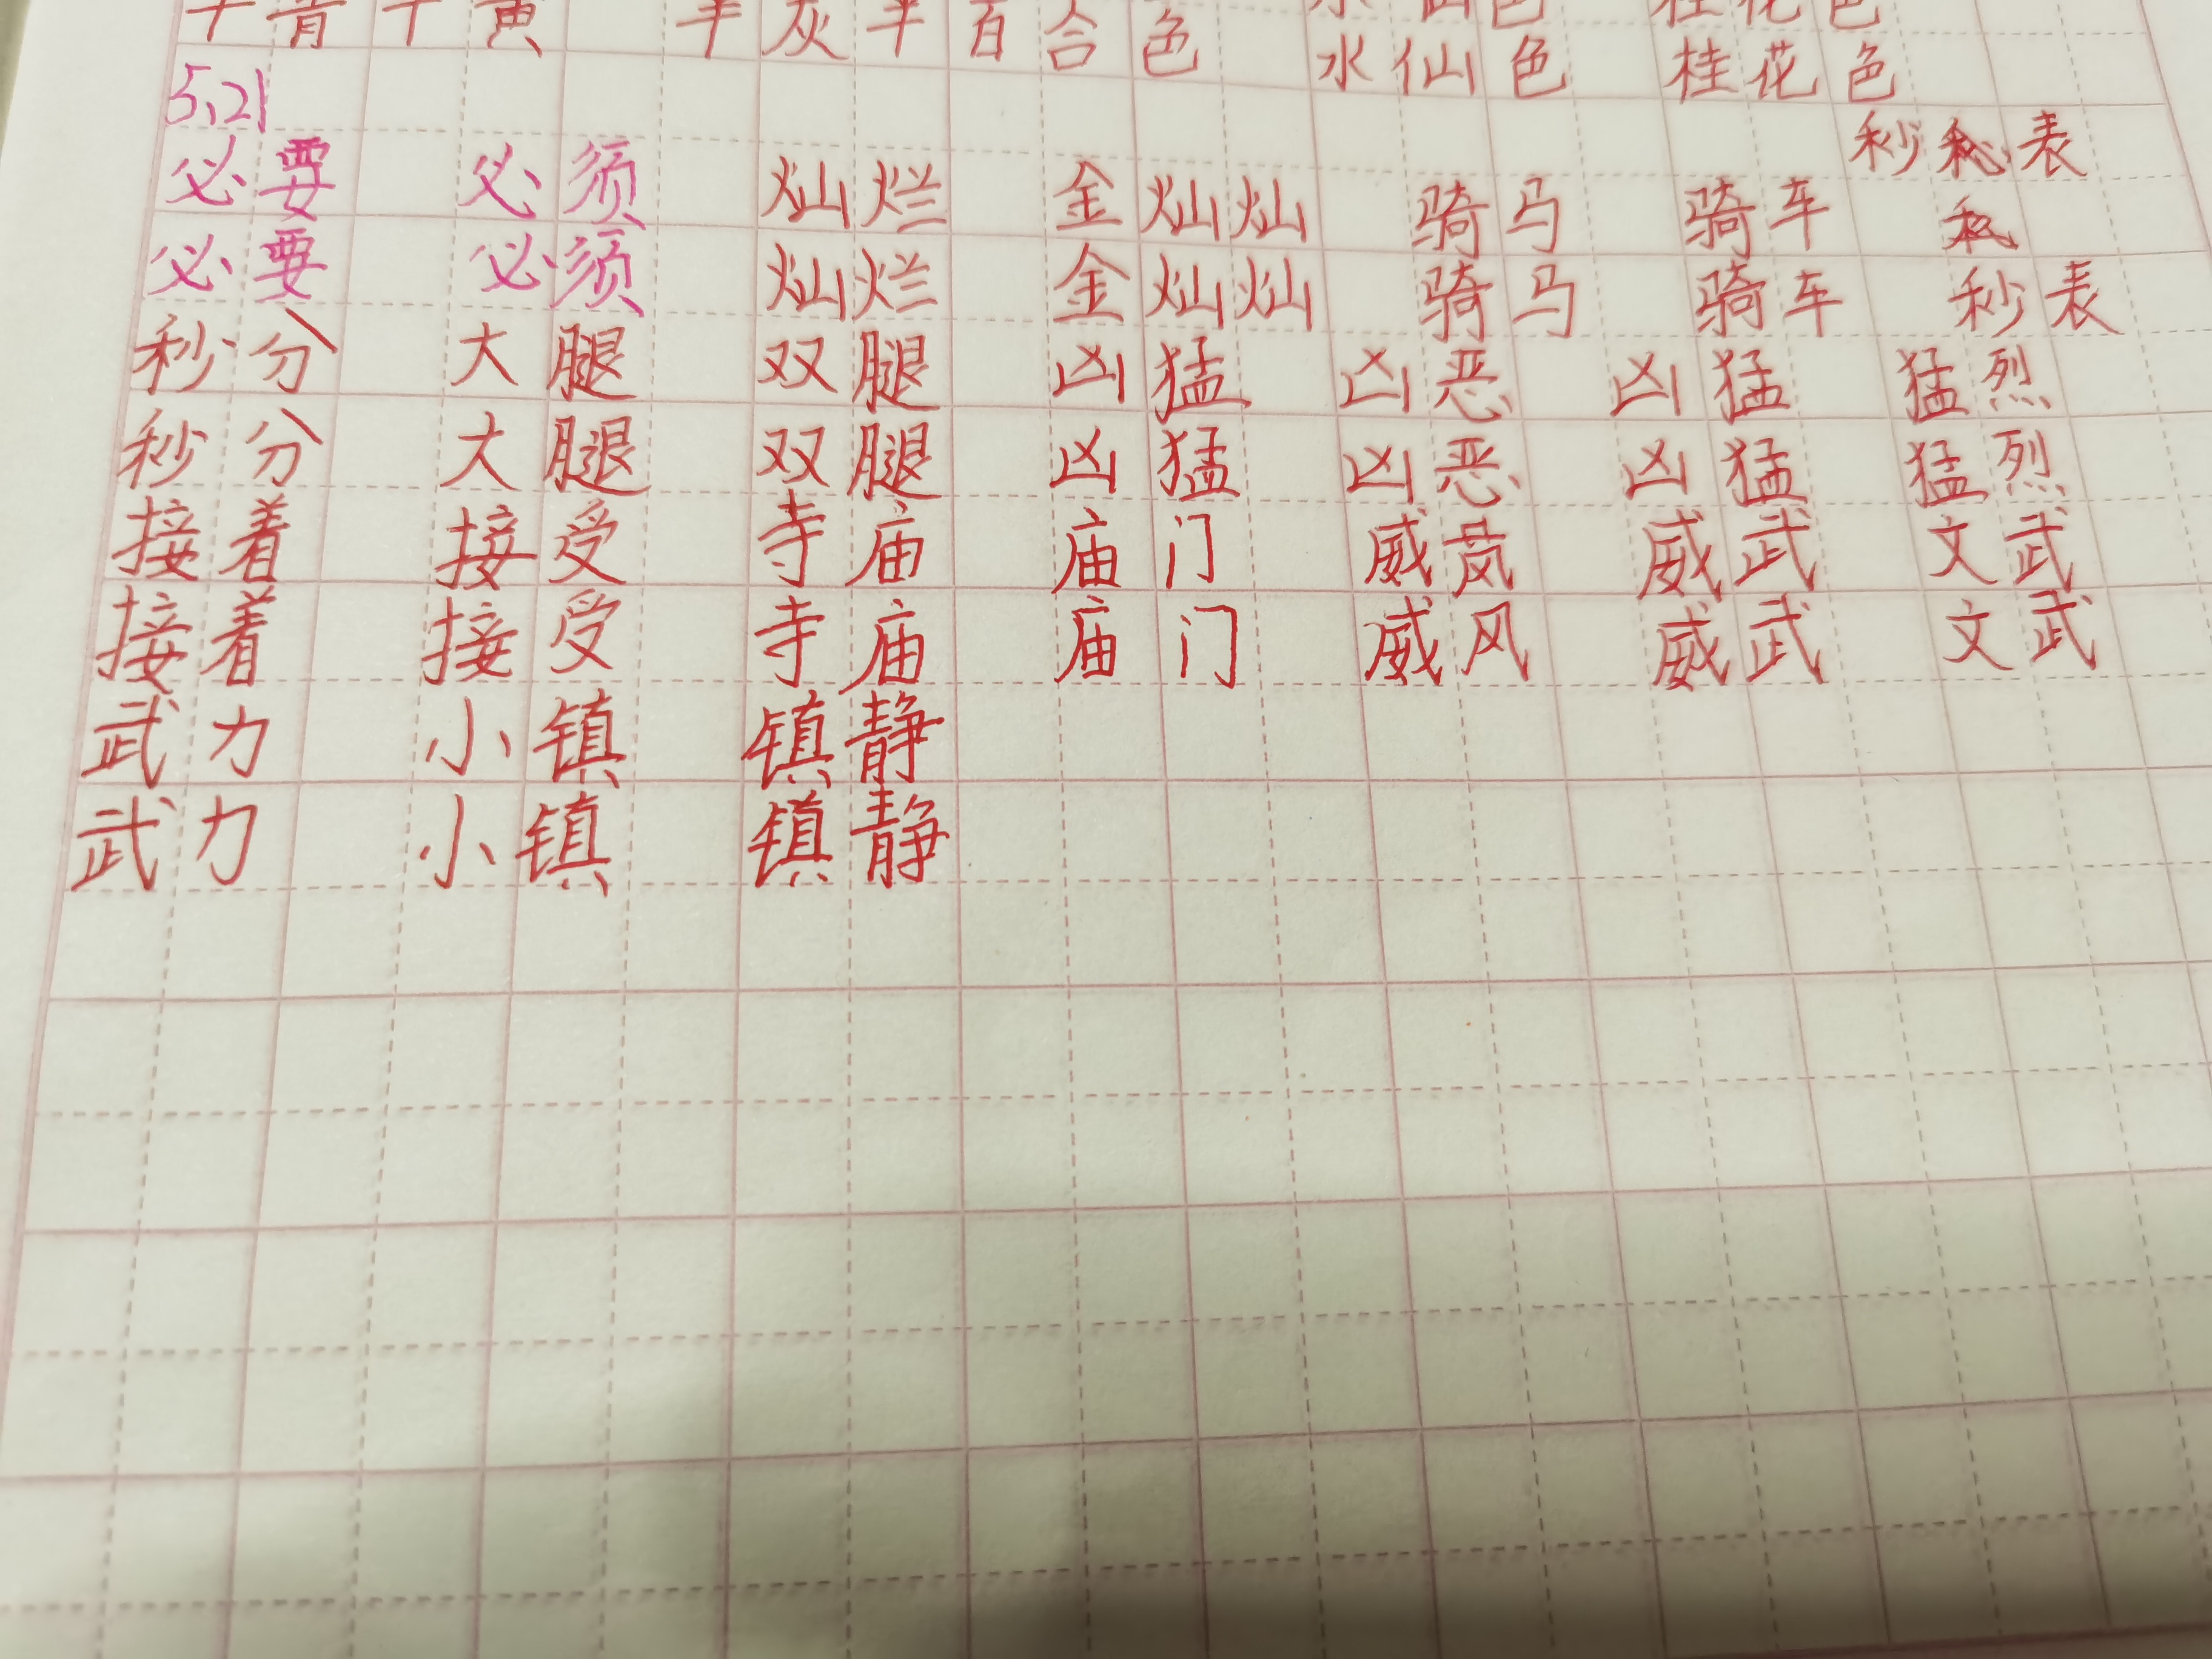 灰 百合色 水仙色 桂花色
5.21
必要 必须 灿烂 金灿灿 骑马 骑车 秒 表
必要 必须 灿烂 金灿灿 骑马 骑车 秒表
秒分 大腿 双腿 凶猛 凶恶 凶猛 猛烈
秒分 大腿 双腿 凶猛 凶恶 凶猛 猛烈
接着 接受 寺庙 庙门 威风 威武 文武
接着 接受 寺庙 庙门 威风 威武 文武
武力 小镇 镇静
武力 小镇 镇静